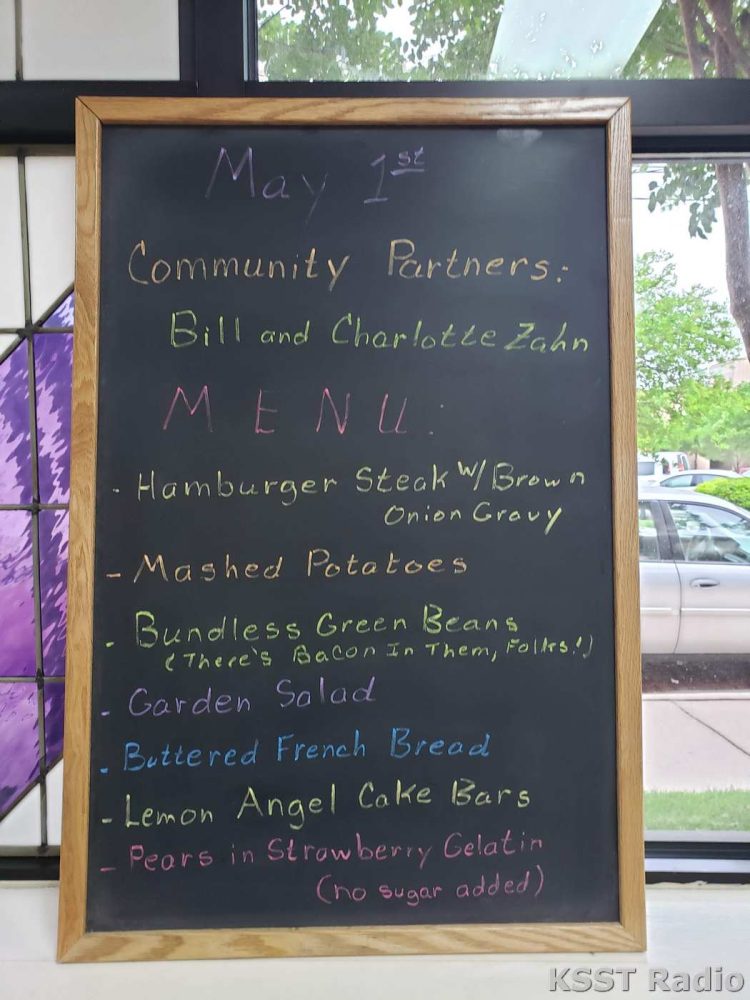 May 1st
Community Partners:
Bill and Charlotte Zahn
MENU:
- Hamburger Steak w/ Brown
Onion Gravy
- Mashed Potatoes
- Bundless Green Beans
(There's Bacon In Them, Folks!)
- Garden Salad
- Buttered French Bread
- Lemon Angel Cake Bars
- Pears in Strawberry Gelatin
(no sugar added)
KSST Radio